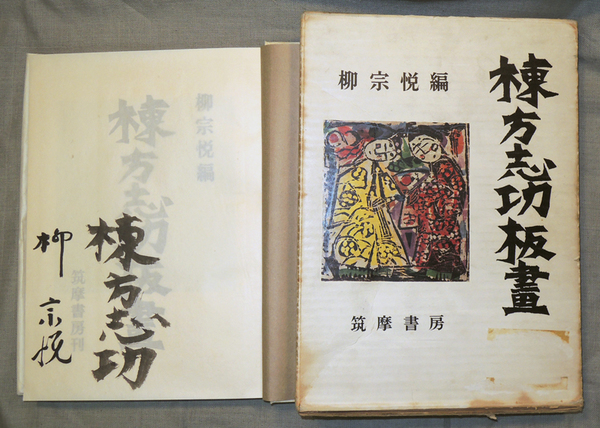 柳宗悦編
棟方志功板畫
筑摩書房刊
棟方志功
柳宗悦
棟方志功板畫
柳宗悦編
筑摩書房